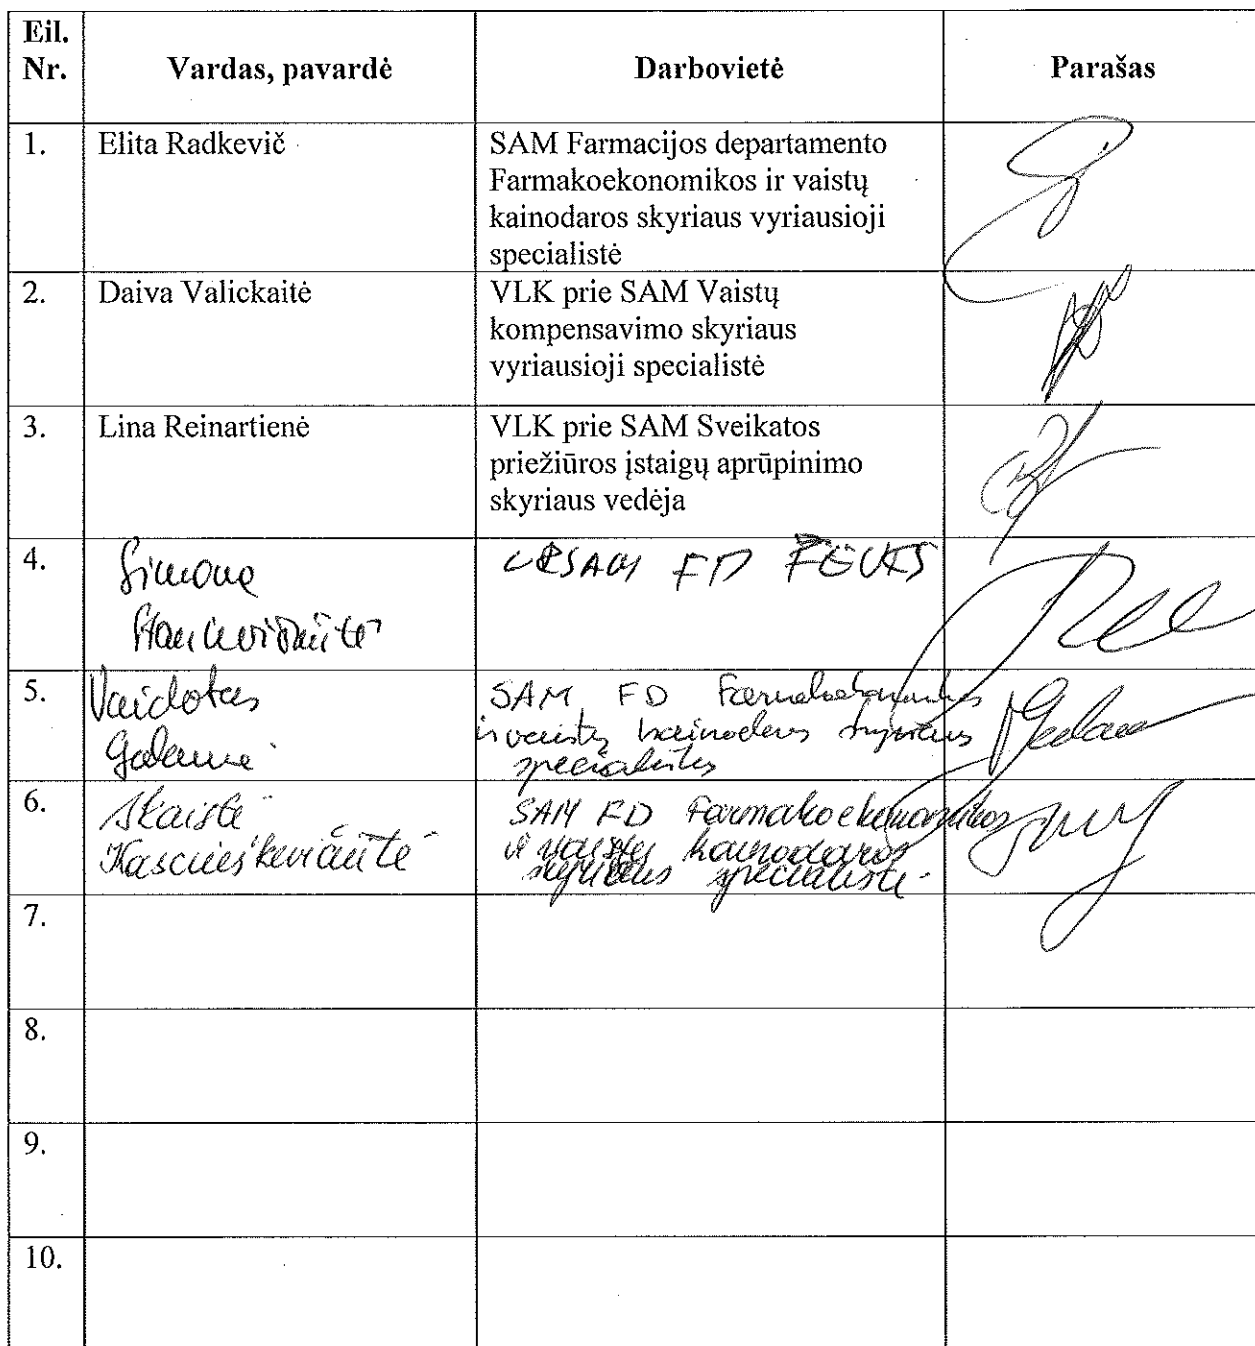 Eil.
Nr.
Vardas, pavardė
Darbovietė
Parašas
1.
Elita Radkevič
SAM Farmacijos departamento
Farmakoekonomikos ir vaistų
kainodaros skyriaus vyriausioji
specialistė
2.
Daiva Valickaitė
VLK prie SAM Vaistų
kompensavimo skyriaus
vyriausioji specialistė
3.
Lina Reinartienė
VLK prie SAM Sveikatos
priežiūros įstaigų aprūpinimo
skyriaus vedėja
4.
Simona
Stankevičiūtė
SAM FD
5.
Vaidotas
SAM FD Farmakoekonomikos
ir vaistų kainodaros skyriaus
specialistas
6.
Skaistė
SAM FD Farmakoekonomikos
ir vaistų kainodaros
skyriaus specialistė
7.
8.
9.
10.